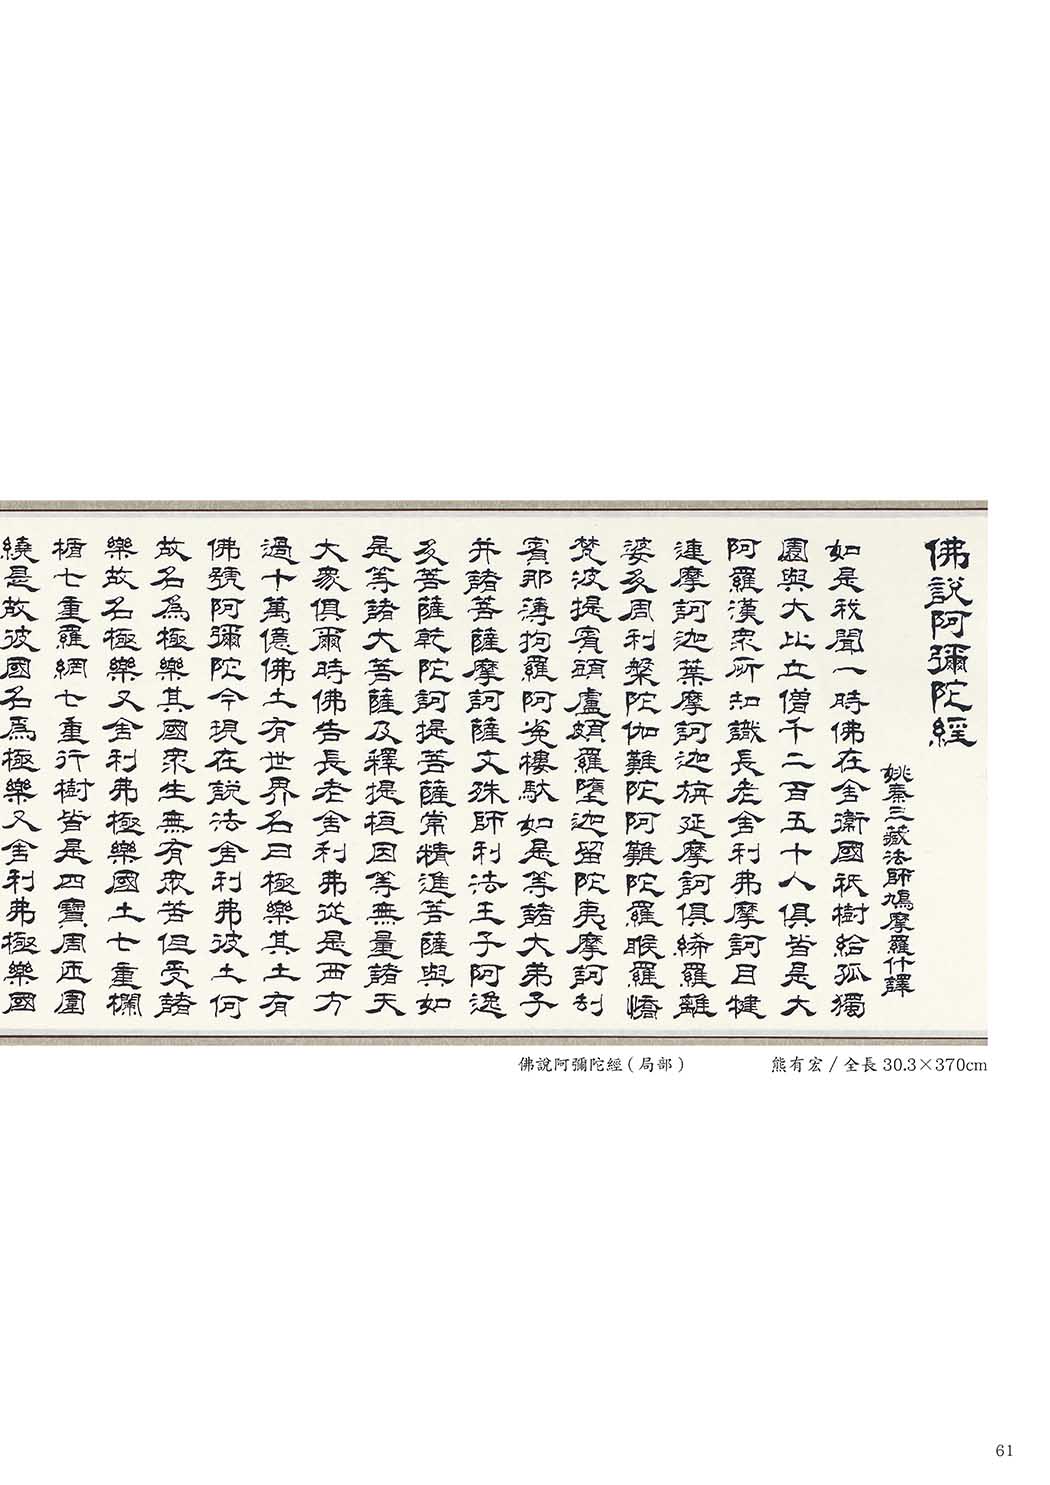 佛說阿彌陀經
姚秦三藏法師鳩摩羅什譯
如是我聞一時佛在舍衛國祇樹給孤獨
園與大比丘僧千二百五十人俱皆是大
阿羅漢眾所知識長老舍利弗摩訶目犍
連摩訶迦葉摩訶迦旃延摩訶俱絺羅離
婆多周利槃陀伽難陀阿難陀羅睺羅憍
梵波提賓頭盧頗羅墮迦留陀夷摩訶劫
賓那薄拘羅阿㝹樓馱如是等諸大弟子
并諸菩薩摩訶薩文殊師利法王子阿逸
多菩薩乾陀訶提菩薩常精進菩薩與如
是等諸大菩薩及釋提桓因等無量諸天
大眾俱爾時佛告長老舍利弗從是西方
過十萬億佛土有世界名曰極樂其土有
佛號阿彌陀今現在說法舍利弗彼土何
故名為極樂其國眾生無有眾苦但受諸
樂故名極樂又舍利弗極樂國土七重欄
楯七重羅網七重行樹皆是四寶周匝圍
繞是故彼國名為極樂又舍利弗極樂國
佛說阿彌陀經(局部)
熊有宏 / 全長 30.3×370cm
61